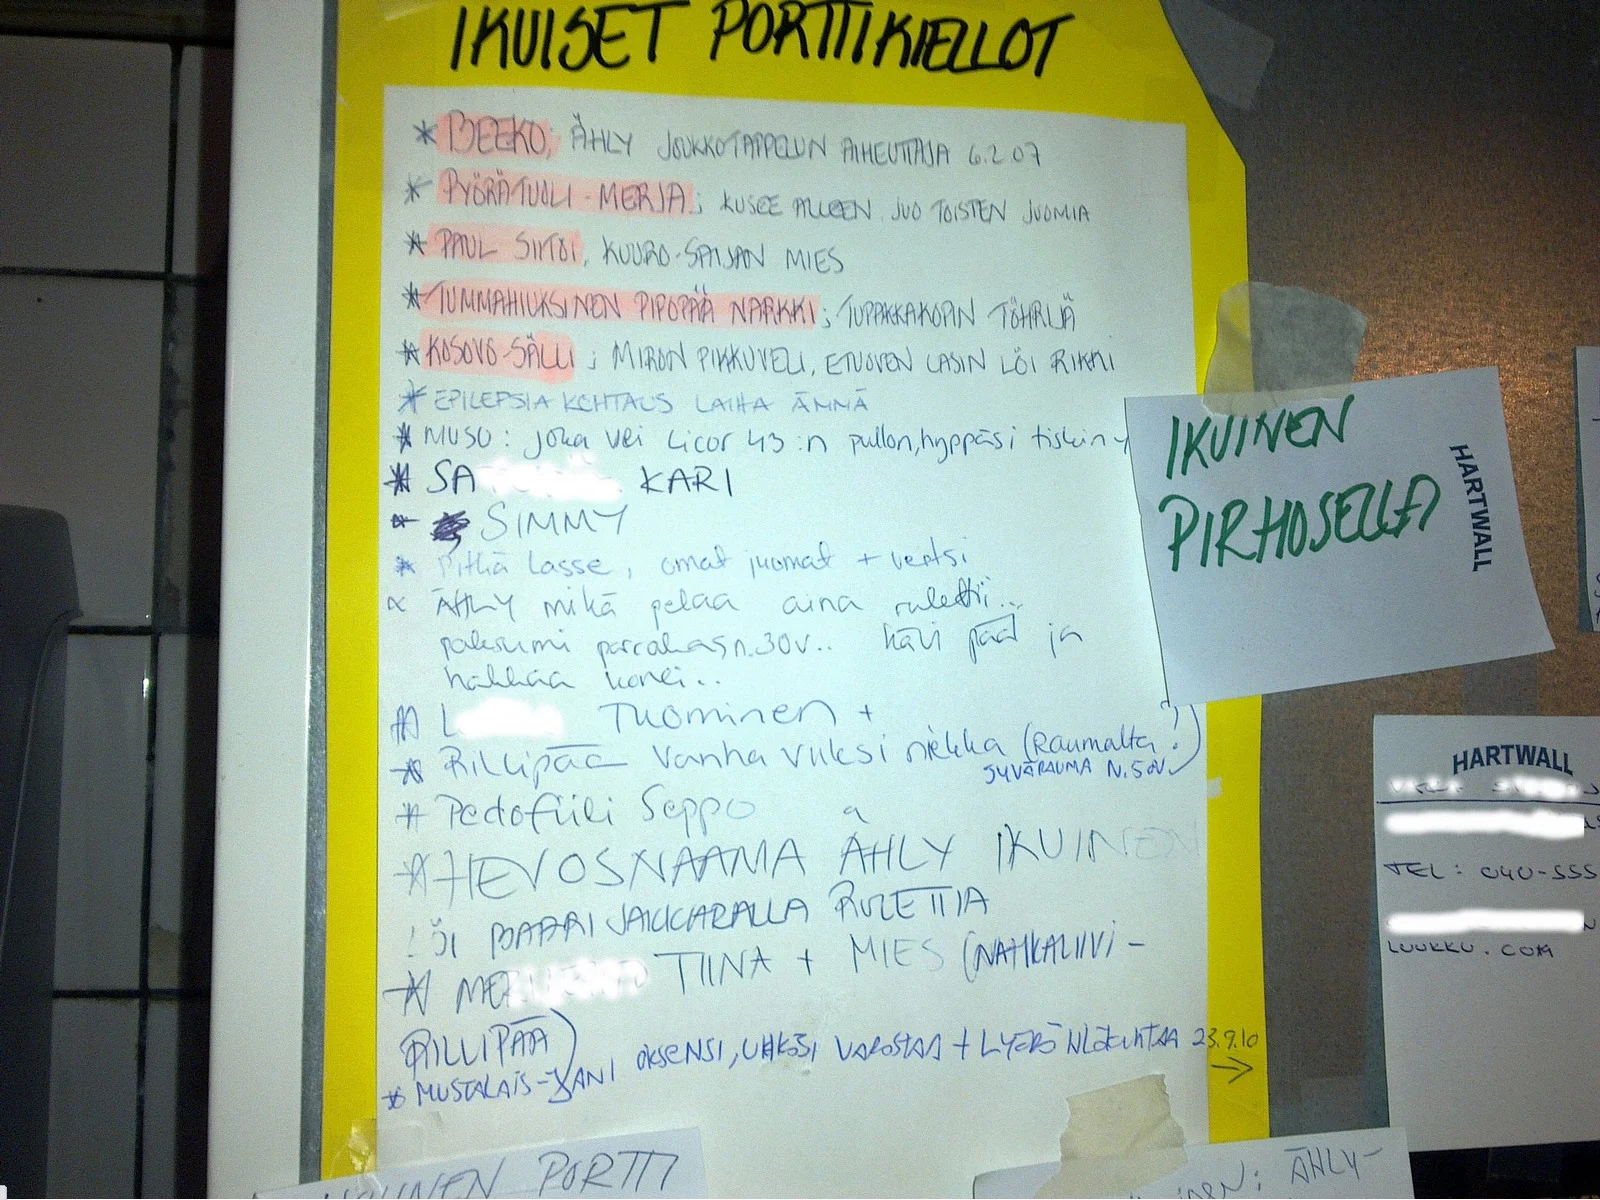 IKUISET PORTTIKIELLOT
* BEEKO; ÄHLY JOUKKOTAPPELUN AIHEUTTAJA 6.2.07
* PYÖRÄTUOLI-MERJA; KUSEE ALLEEN JUO TOISTEN JUOMIA
* PAUL SIITOI, KUURO-SAIJAN MIES
* TUMMAHIUKSINEN PIPOPÄÄ NARKKI; TUPAKKAKOPIN TÖHRIJÄ
* KOSOVO-SÄLLI; MIRON PIKKUVELI, ETUOVEN LASIN LÖI RIKKI
* EPILEPSIA KOHTAUS LAIHA ÄMMÄ
* MUSU: joka vei Licor 43:n pullon, hyppäsi tiskin
* SA KARI
* SIMMY
* Pitkä Lasse, omat juomat +
* ÄHLY mikä pelaa aina rulettii...
paksumi parrakas n.30v.. kävi pääl ja
hakkaa konei..
* L Tuominen +
* Rillipää vanha viiksi niekka (Raumalta?)
SYVÄRAUMA N.50V.
* Pedofiili Seppo
* HEVOSNAAMA ÄHLY IKUINEN
LÖI BAARIJAKKARALLA RULETTIA
* ME TIINA + MIES (NAHKALIIVI-
RILLIPÄÄ)
* MUSTALAIS-JANI OKSENSI, UHKASI VARASTAA + 23.9.10
→
IKUINEN
PIRHOSELLA
HARTWALL
HARTWALL
TEL: 040-555
LUUKKU.COM
PORTTI
ÄHLY-